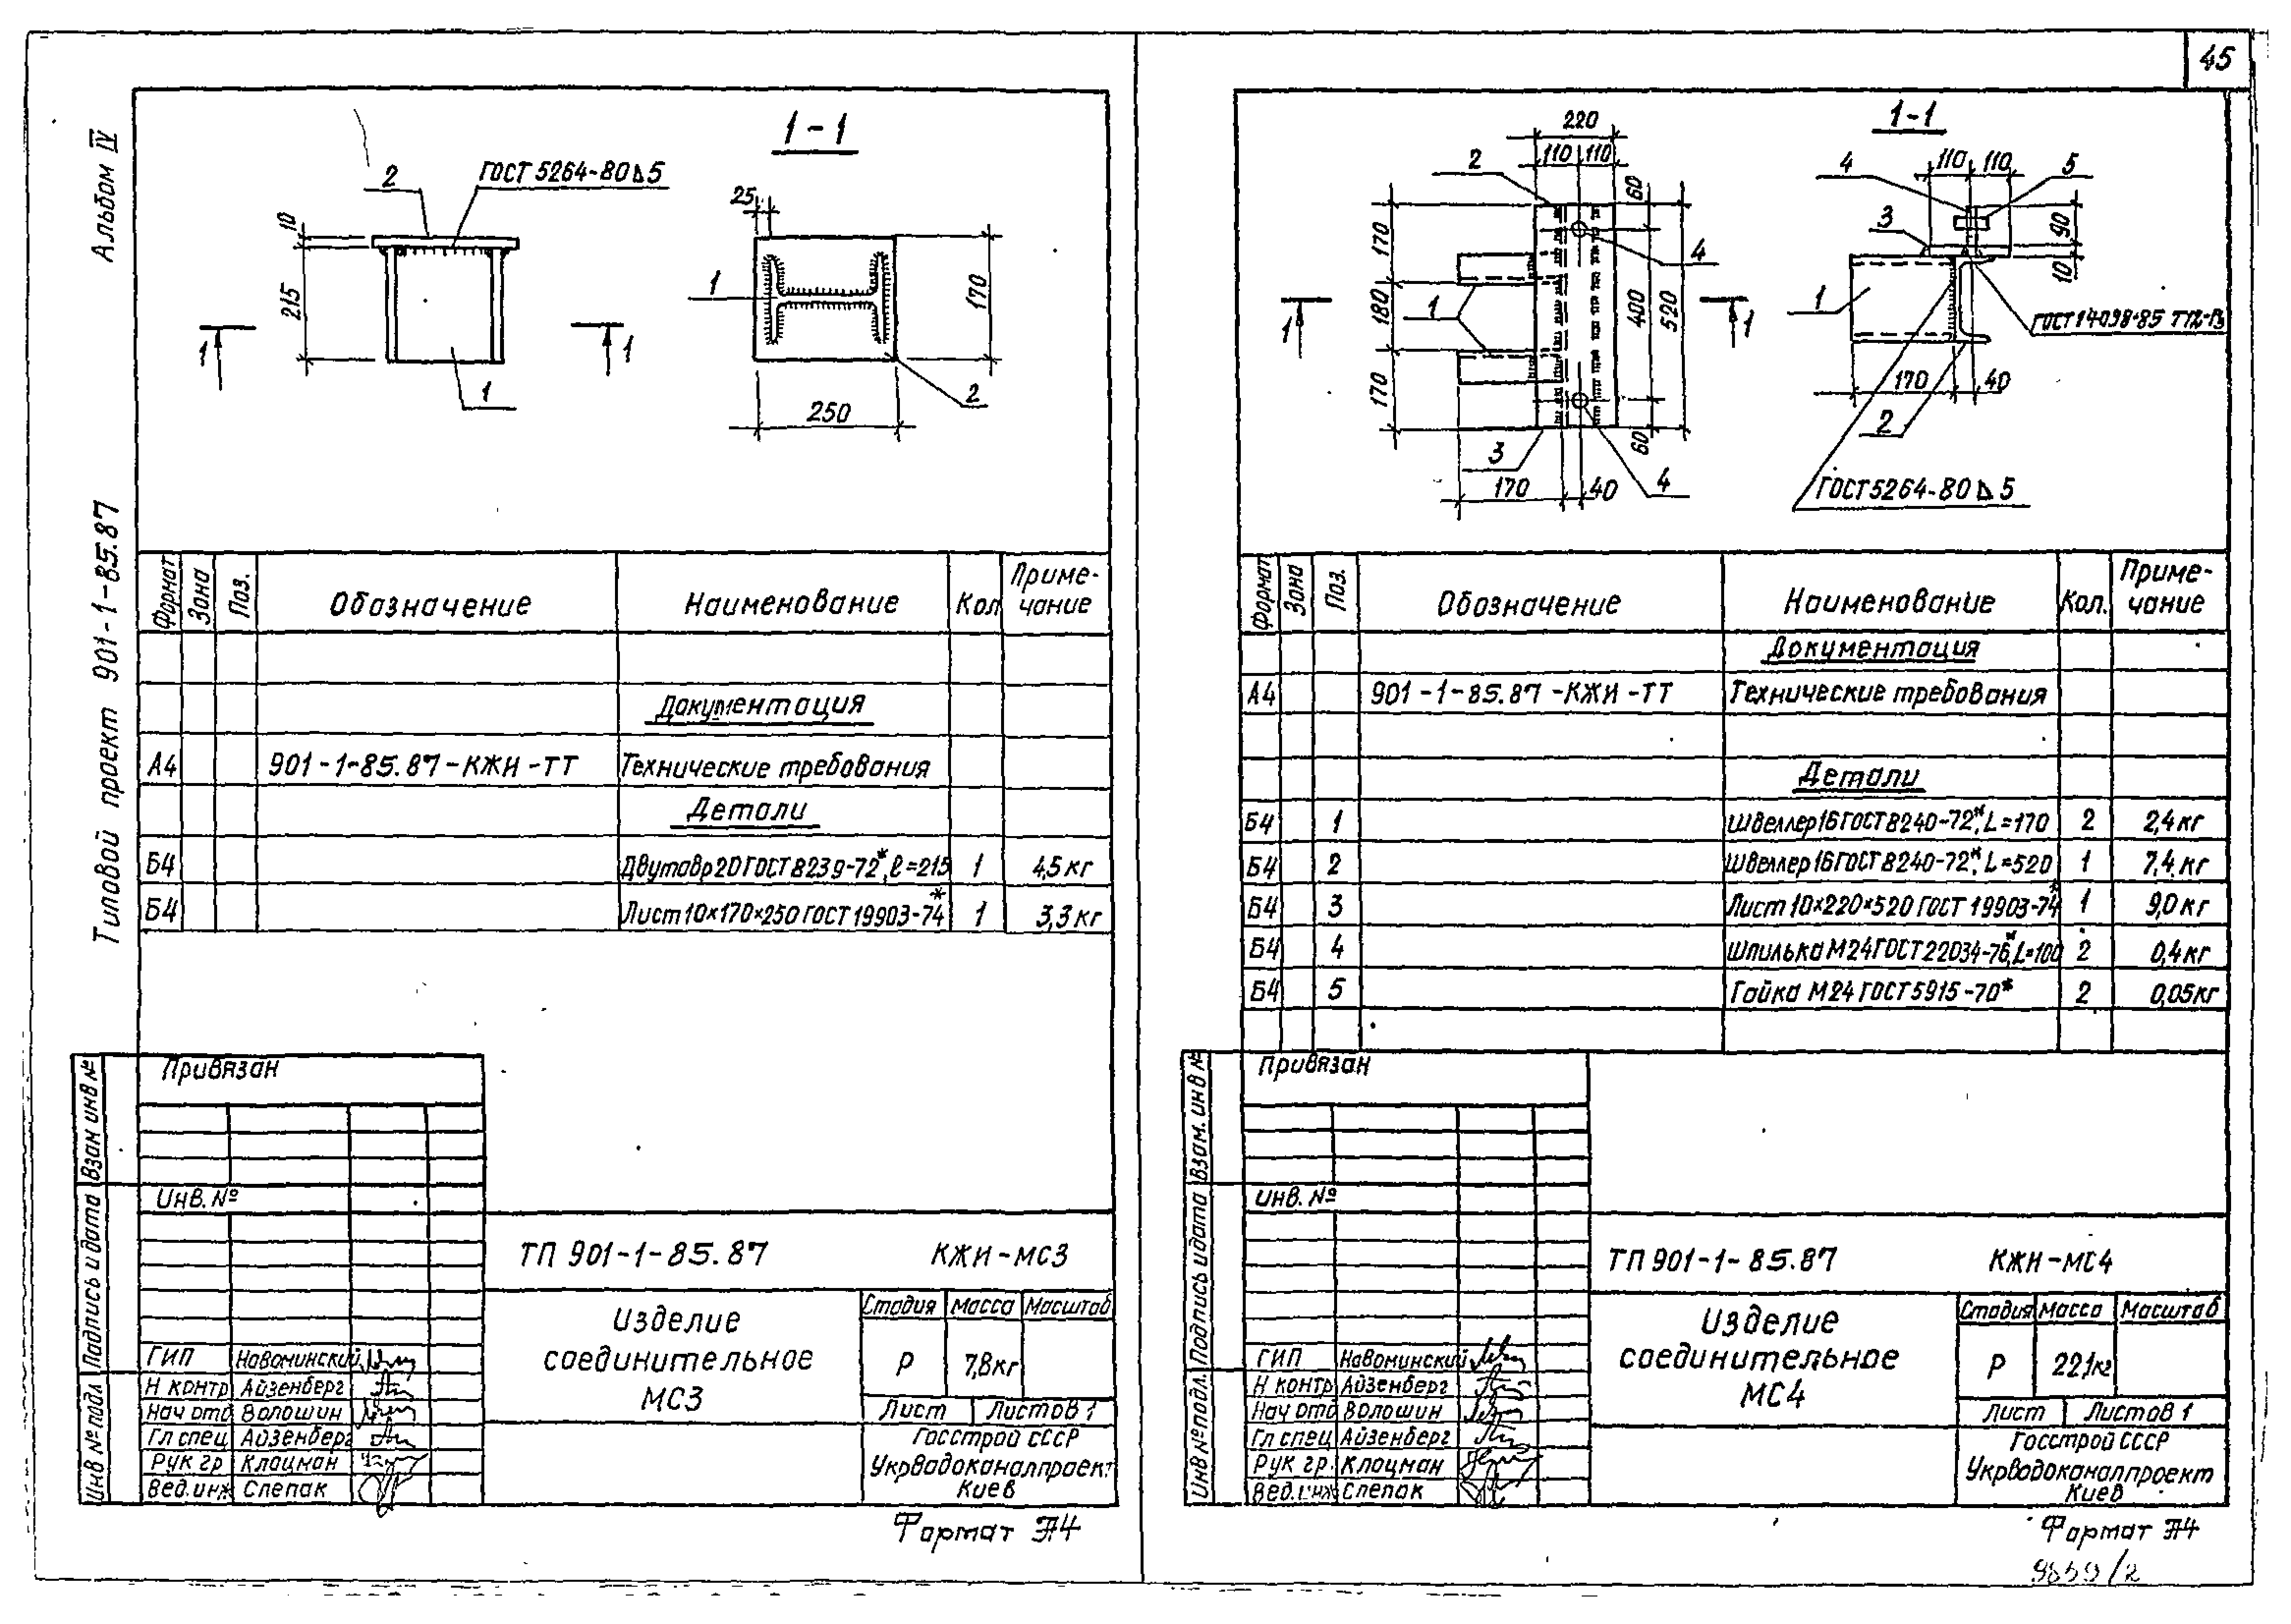 45
Альбом IV
Типовой проект 901-1-85.87
1-1
2
ГОСТ 5264-80 5
10
215
1
1
1
25
1
170
250
2
Формат Зона Поз. Обозначение Наименование Кол Приме-
чание
Документация
А4 901-1-85.87-КЖИ-ТТ Технические требования
Детали
Б4 Двутавр 20 ГОСТ 8239-72*, ℓ=215 1 4,5 кг
Б4 Лист 10×170×250 ГОСТ 19903-74* 1 3,3 кг
Привязан
Инв. №
Взам инв №
Подпись и дата
Инв № подл
ТП 901-1-85.87 КЖИ-МС3
Изделие
соединительное
МС3
Стадия Масса Масштаб
Р 7,8кг
Лист Листов 1
Госстрой СССР
Укрводоканалпроект
Киев
ГИП Новоминский
Н контр Айзенберг
Нач отд Волошин
Гл спец Айзенберг
Рук гр Клоцман
Вед.инж Слепак
Формат А4
1-1
220
110 110
2
60
170
180
170
4
400
520
1
1
1
60
3
4
170
40
4
110 110
5
3
90
10
1
ГОСТ 14098-85 Т12-Рз
170
40
2
ГОСТ 5264-80 5
Формат Зона Поз. Обозначение Наименование Кол. Приме-
чание
Документация
А4 901-1-85.87-КЖИ-ТТ Технические требования
Детали
Б4 1 Швеллер 16 ГОСТ 8240-72*, L=170 2 2,4 кг
Б4 2 Швеллер 16 ГОСТ 8240-72*, L=520 1 7,4 кг
Б4 3 Лист 10×220×520 ГОСТ 19903-74* 1 9,0 кг
Б4 4 Шпилька М24 ГОСТ 22034-76*, L=100 2 0,4 кг
Б4 5 Гайка М24 ГОСТ 5915-70* 2 0,05 кг
Привязан
Инв. №
Взам. инв №
Подпись и дата
Инв № подл.
ТП 901-1-85.87 КЖИ-МС4
Изделие
соединительное
МС4
Стадия Масса Масштаб
Р 22,1кг
Лист Листов 1
Госстрой СССР
Укрводоканалпроект
Киев
ГИП Новоминский
Н контр Айзенберг
Нач отд Волошин
Гл спец Айзенберг
Рук гр. Клоцман
Вед.инж Слепак
Формат А4